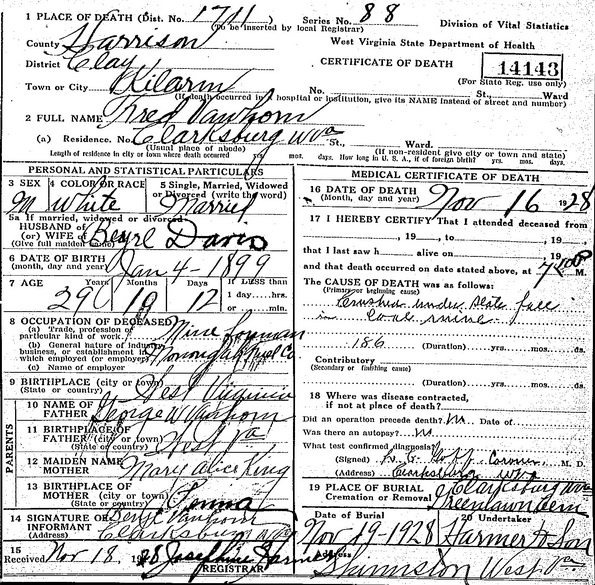 1 PLACE OF DEATH (Dist. No. 1711 Series No. 88 Division of Vital Statistics
(To be inserted by local Registrar)
County Harrison West Virginia State Department of Health
District Clay CERTIFICATE OF DEATH 14143
(For State Reg. use only)
Town or City Kilarm No. St., Ward
(If death occurred in a hospital or institution, give its NAME instead of street and number)
2 FULL NAME Fred Vanhorn
(a) Residence. No. Clarksburg Wva St., Ward.
(Usual place of abode) (If non-resident give city or town and state)
Length of residence in city or town where death occurred yrs. mos. days. How long in U. S. A., if of foreign birth? yrs. mos. days
PERSONAL AND STATISTICAL PARTICULARS
3 SEX 4 COLOR OR RACE 5 Single, Married, Widowed
or Divorced (write the word)
M White Married
5a If married, widowed or divorced
HUSBAND of
(or) WIFE of Beryl Davis
(Give full maiden name)
6 DATE OF BIRTH
(month, day and year) Jan 4-1899
7 AGE Years Months Days If LESS than
1 day....hrs.
or....min.
29 10 12
8 OCCUPATION OF DECEASED
(a) Trade, profession, or
particular kind of work. Mine foreman
(b) General nature of industry,
business, or establishment in
which employed (or employer)
(c) Name of employer
9 BIRTHPLACE (city or town)
(State or country) West Virginia
10 NAME OF
FATHER George W Vanhorn
11 BIRTHPLACE OF
FATHER (city or town)
(State or country) West Va
12 MAIDEN NAME
MOTHER Mary Alice King
13 BIRTHPLACE OF
MOTHER (city or town)
(State or country)
PARENTS
14 SIGNATURE OF
INFORMANT Beryl Vanhorn
(Address) Clarksburg Wva
15
Received Nov 18. 1928 Josephine Harmer
REGISTRAR
MEDICAL CERTIFICATE OF DEATH
16 DATE OF DEATH
(Month, day and year) Nov 16 1928
17 I HEREBY CERTIFY That I attended deceased from
, 19 , to , 19
that I last saw h alive on , 19
and that death occurred on date stated above, at M.
The CAUSE OF DEATH was as follows:
(Primary or beginning cause)
Crushed under slate fall
in coal mine
186
(Duration) yrs. mos. ds.
Contributory
(Secondary or finishing cause)
(Duration) yrs. mos. ds.
18 Where was disease contracted,
if not at place of death?
Did an operation precede death? No Date of
Was there an autopsy? No
What test confirmed diagnosis?
(Signed) Coroner M. D.
(Address) Clarksburg Wva
19 PLACE OF BURIAL
Cremation or Removal Clarksburg Wva
Greenlawn Cem
Date of Burial 20 Undertaker
Nov 19-1928 Harmer & Son
Address Shinnston West Va